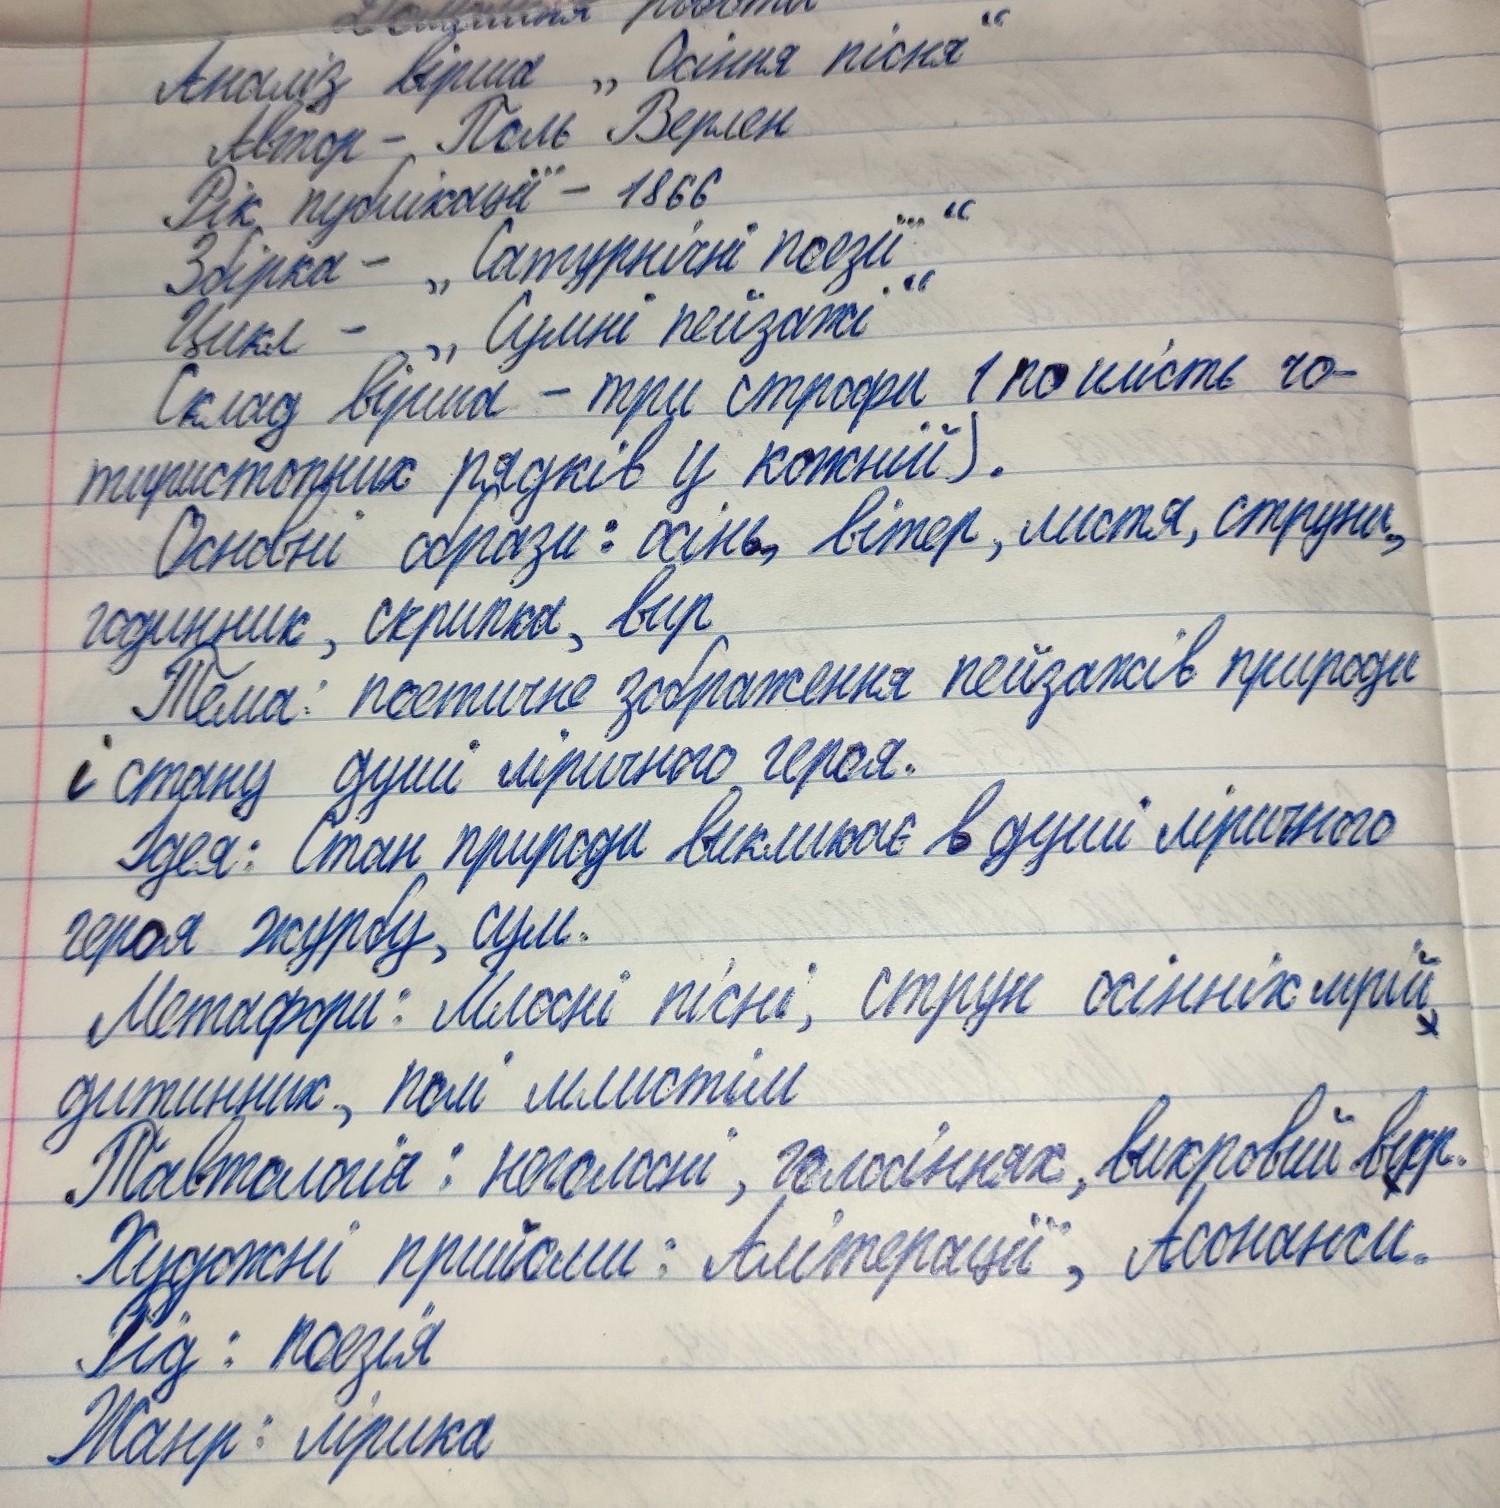 Домашня робота
Аналіз вірша „Осіння пісня“
Автор - Поль Верлен
Рік публікації - 1866
Збірка - „Сатурнічні поезії“
Цикл - „Сумні пейзажі“
Склад вірша - три строфи (по шість чо-
тиристопних рядків у кожній).
Основні образи: осінь, вітер, листя, струни,
годинник, скрипка, вир
Тема: поетичне зображення пейзажів природи
і стану душі ліричного героя.
Ідея: Стан природи викликає в душі ліричного
героя журбу, сум.
Метафори: Млосні пісні, струн осінніх мрій,
дитинних, полі млистім
Тавтологія: ноголосні, голосіннях, вихровий вихр.
Художні прийоми: Алітерації, Асонанси.
Рід: поезія
Жанр: лірика